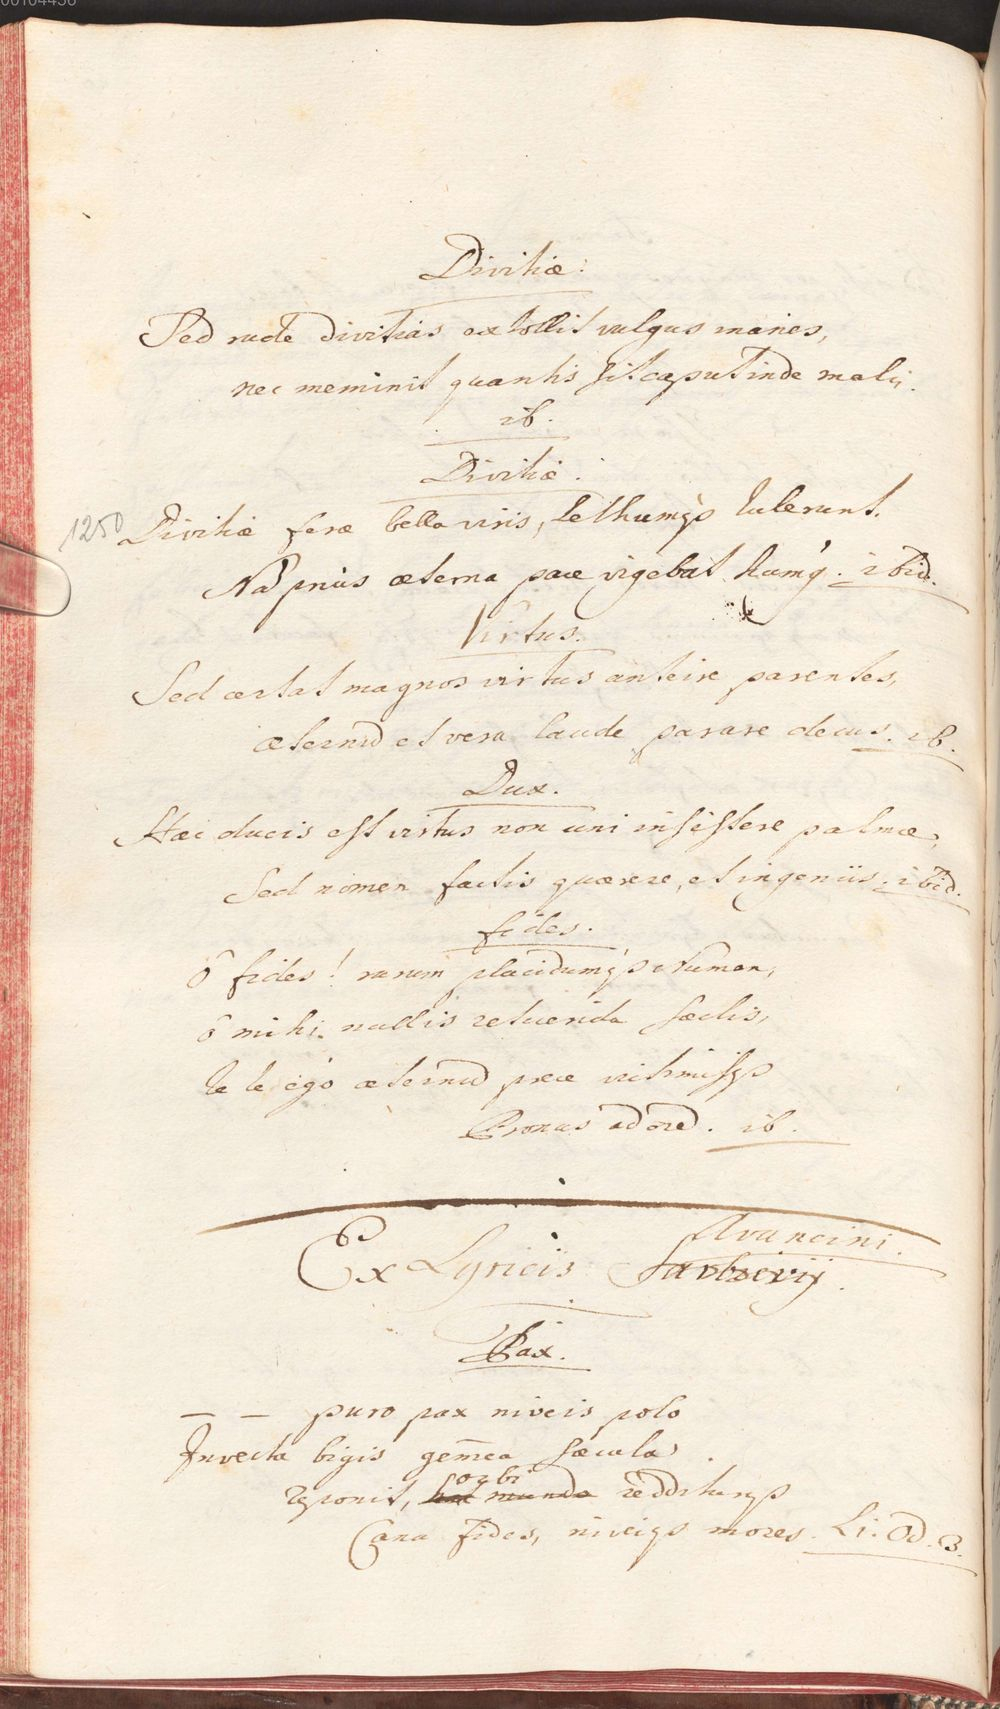 00104456
Divitiæ.
Sed rude divitias extollit vulgus inanes,
nec meminit quantis sit caput inde malis.
ib.
Divitiæ.
1250
Divitiæ feræ bella viris, lethumq3 tulerunt.
Nā prius æterna pace vigebat humq. ibid.
Virtus.
Sed certat magnos virtus anteire parentes,
æternū et vera laude parare decus. ib.
Dux.
Hæc ducis est virtus non uni insistere palmæ,
Sed nomen factis quærere, et ingeniis. ibid.
fides.
ô fides! rarum placidumq3 Numen,
ô mihi nullis reticenda sæclis,
te te ego æternū prece victimisq3
Pronus adorō. ib.
Ex Lyricis Avancini.
Sarbievij.
Pax.
_ _ puro pax niveis polo
Invecta bigis gem̄ea sæcula
reponit, orbi redditurq3
Cana fides, niveiq3 mores. L. 1. Od. 3.